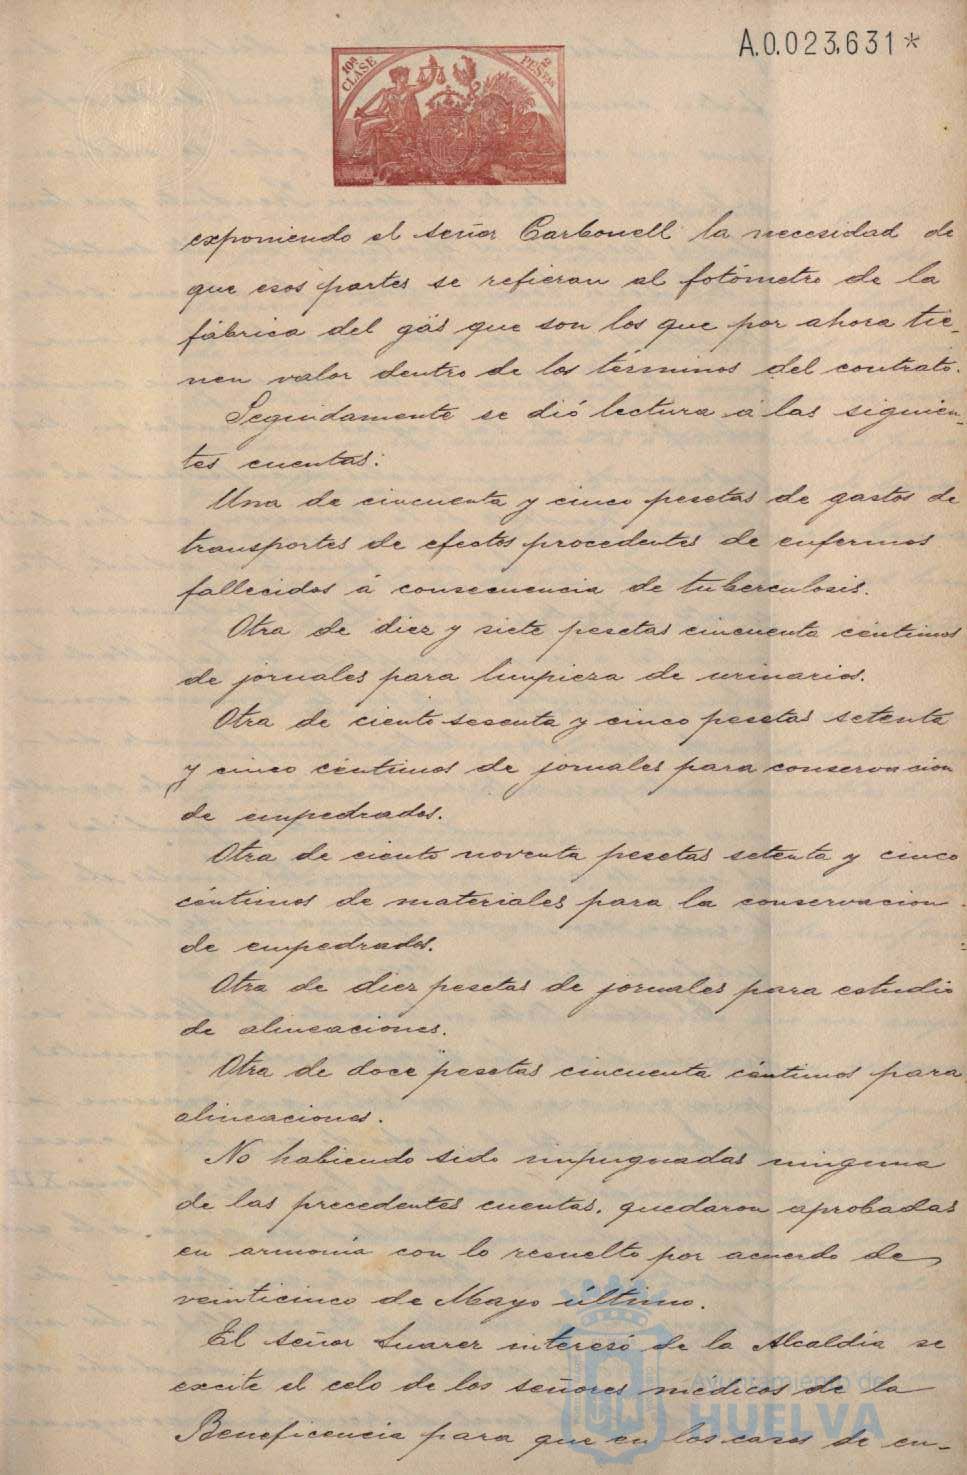 A.0.023,631*
10ª CLASE
2 PESETAS
exponiendo el señor Carbonell la necesidad de
que esos partes se refieran al fotómetro de la
fábrica del gás que son los que por ahora tie-
nen valor dentro de los términos del contrato.
Seguidamente se dió lectura á las siguien-
tes cuentas:
Una de cincuenta y cinco pesetas de gastos de
transportes de efectos procedentes de enfermos
fallecidos á consecuencia de tuberculosis.
Otra de diez y siete pesetas cincuenta céntimos
de jornales para limpieza de urinarios.
Otra de ciento sesenta y cinco pesetas setenta
y cinco céntimos de jornales para conservacion
de empedrados.
Otra de ciento noventa pesetas setenta y cinco
céntimos de materiales para la conservacion
de empedrados.
Otra de diez pesetas de jornales para estudio
de alineaciones.
Otra de doce pesetas cincuenta céntimos para
alineaciones.
No habiendo sido impugnadas ninguna
de las precedentes cuentas, quedaron aprobadas
en armonía con lo resuelto por acuerdo de
veinticinco de Mayo último.
El señor Suarez interesó de la Alcaldía se
excite el celo de los señores médicos de la
Beneficencia para que en los casos de en-
Ayuntamiento de
HUELVA